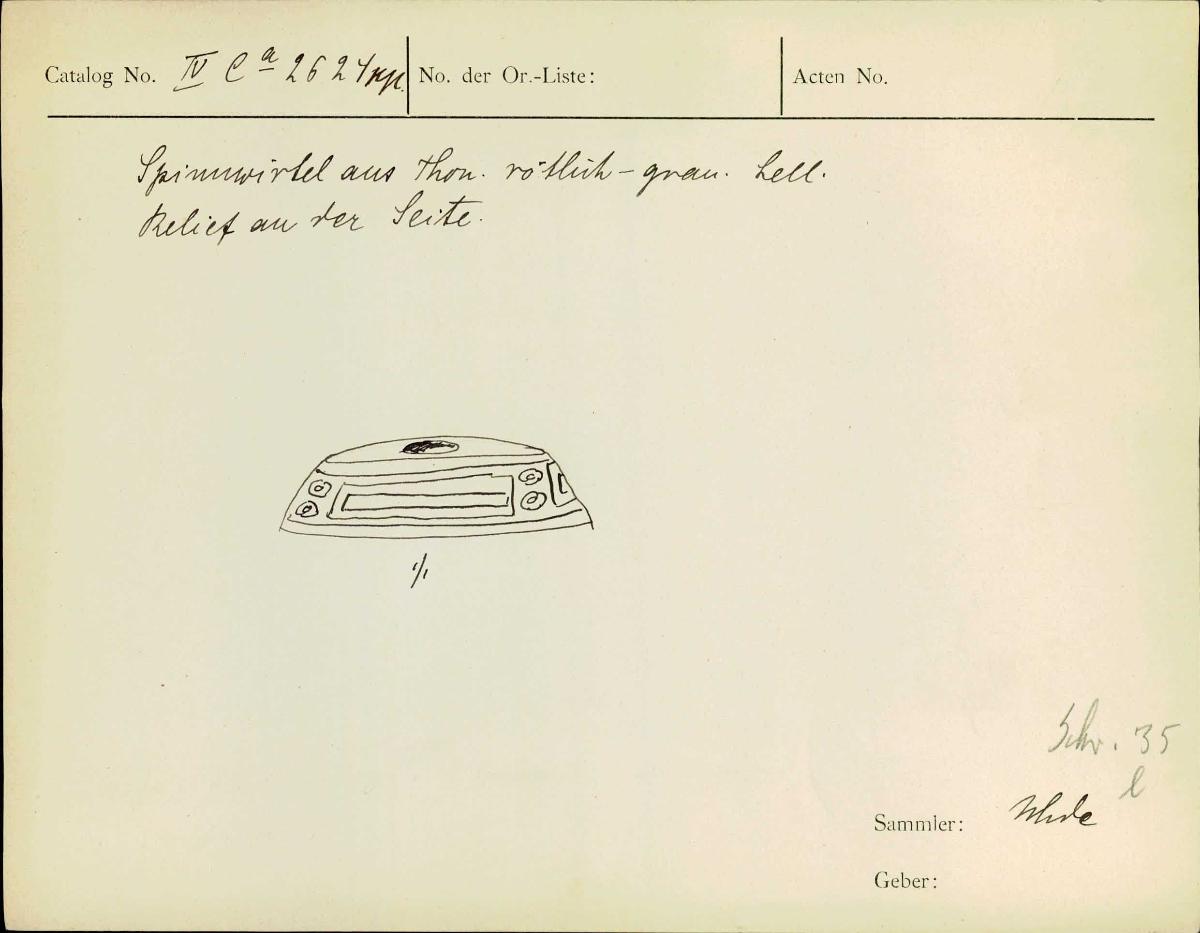 Catalog No. IV Ca 2624 No. der Or.-Liste: Acten No.
Spinnwirtel aus Thon. rötlich-grau. hell.
Relief an der Seite.
1/1
Schr. 35
l
Sammler: Uhde
Geber: